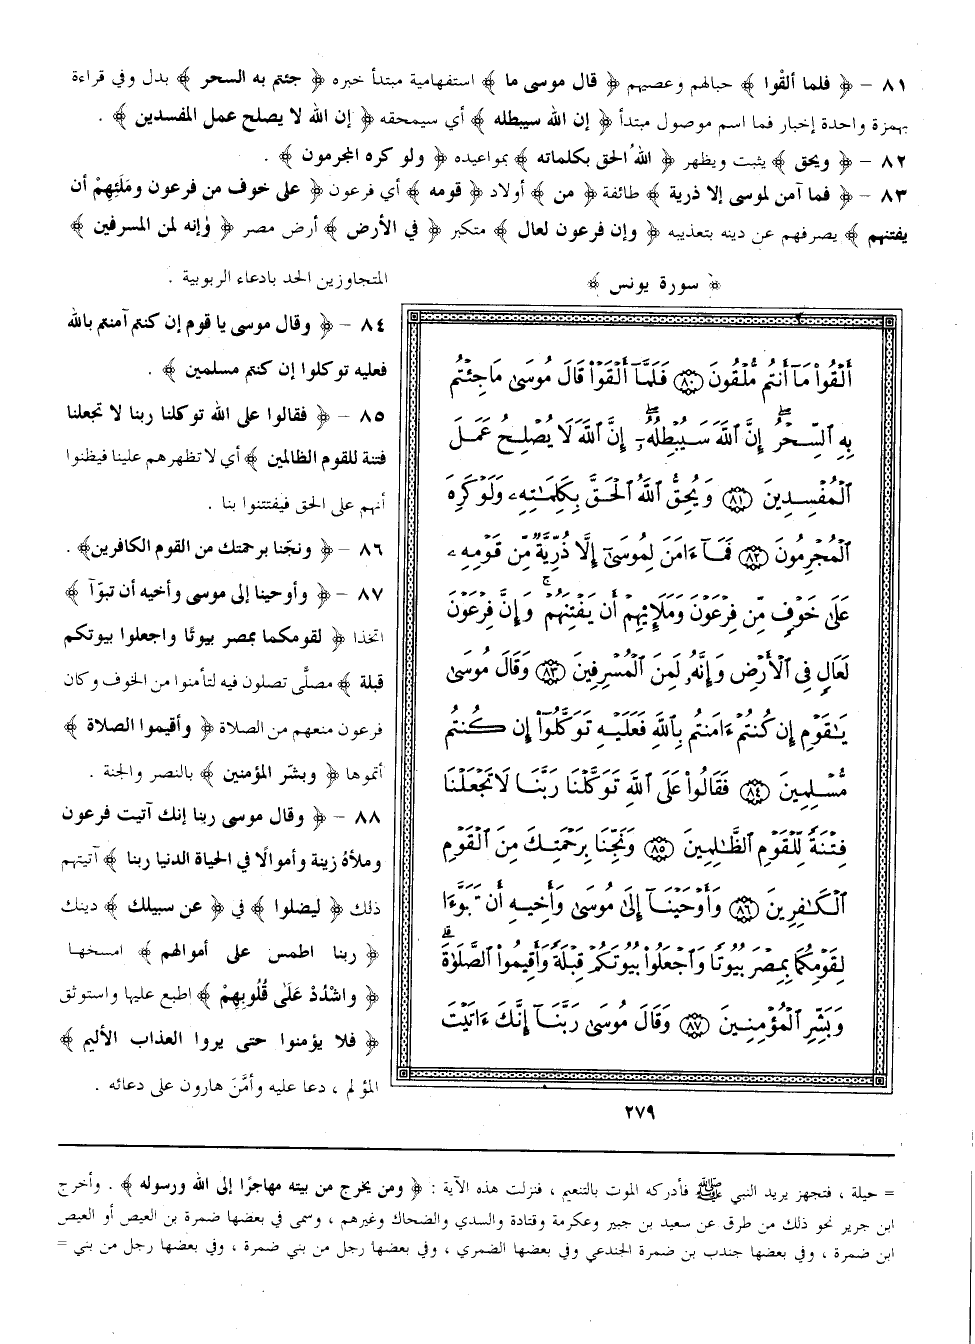 ٨١ – ﴿ فلما ألقْوا ﴾ حبالهم وعصيهم ﴿ قال موسى ما ﴾ استفهامية مبتدأ خبره ﴿ جئتم به السحر ﴾ بدل وفي قراءة
بهمزة واحدة إخبار فما اسم موصول مبتدأ ﴿ إن الله سيبطله ﴾ أي سيمحقه ﴿ إن الله لا يصلح عمل المفسدين ﴾ .
٨٢ – ﴿ ويحق ﴾ يثبت ويظهر ﴿ اللهُ الحق بكلماته ﴾ بمواعيده ﴿ ولو كره المجرمون ﴾ .
٨٣ – ﴿ فما آمن لموسى إلا ذرية ﴾ طائفة ﴿ من ﴾ أولاد ﴿ قومه ﴾ أي فرعون ﴿ على خوف من فرعون ومَلَئِهِمْ أن
يفتنهم ﴾ يصرفهم عن دينه بتعذيبه ﴿ وإن فرعون لعال ﴾ متكبر ﴿ في الأرض ﴾ أرض مصر ﴿ وإنه لمن المسرفين ﴾
المتجاوزين الحد بادعاء الربوبية .
٨٤ – ﴿ وقال موسى يا قوم إن كنتم آمنتم بالله
فعليه توكلوا إن كنتم مسلمين ﴾ .
٨٥ – ﴿ فقالوا على الله توكلنا ربنا لا تجعلنا
فتنة للقوم الظالمين ﴾ أي لا تظهرهم علينا فيظنوا
أنهم على الحق فيفتتنوا بنا .
٨٦ – ﴿ ونجّنا برحمتك من القوم الكافرين﴾ .
٨٧ – ﴿ وأوحينا إلى موسى وأخيه أن تبوّآ ﴾
اتخذا ﴿ لقومكما بمصر بيوتًا واجعلوا بيوتكم
قبلة ﴾ مصلًّى تصلون فيه لتأمنوا من الخوف وكان
فرعون منعهم من الصلاة ﴿ وأقيموا الصلاة ﴾
أتموها ﴿ وبشّر المؤمنين ﴾ بالنصر والجنة .
٨٨ – ﴿ وقال موسى ربنا إنك آتيت فرعون
وملأهُ زينة وأموالًا في الحياة الدنيا ربنا ﴾ آتيتهم
ذلك ﴿ ليضلوا ﴾ في ﴿ عن سبيلك ﴾ دينك
﴿ ربنا اطمس على أموالهم ﴾ امسخها
﴿ واشْدُدْ عَلَىٰ قُلُوبِهِمْ ﴾ اطبع عليها واستوثق
﴿ فلا يؤمنوا حتى يروا العذاب الأليم ﴾
المؤلم ، دعا عليه وأمَّنَ هارون على دعائه .
﴿ سورة يونس ﴾
أَلْقُوا۟ مَآ أَنتُم مُّلْقُونَ ٨٠ فَلَمَّآ أَلْقَوْا۟ قَالَ مُوسَىٰ مَا جِئْتُم
بِهِ ٱلسِّحْرُ ۖ إِنَّ ٱللَّهَ سَيُبْطِلُهُۥٓ ۖ إِنَّ ٱللَّهَ لَا يُصْلِحُ عَمَلَ
ٱلْمُفْسِدِينَ ٨١ وَيُحِقُّ ٱللَّهُ ٱلْحَقَّ بِكَلِمَٰتِهِۦ وَلَوْ كَرِهَ
ٱلْمُجْرِمُونَ ٨٢ فَمَآ ءَامَنَ لِمُوسَىٰٓ إِلَّا ذُرِّيَّةٌ مِّن قَوْمِهِۦ
عَلَىٰ خَوْفٍ مِّن فِرْعَوْنَ وَمَلَإِيهِمْ أَن يَفْتِنَهُمْ ۚ وَإِنَّ فِرْعَوْنَ
لَعَالٍ فِى ٱلْأَرْضِ وَإِنَّهُۥ لَمِنَ ٱلْمُسْرِفِينَ ٨٣ وَقَالَ مُوسَىٰ
يَٰقَوْمِ إِن كُنتُمْ ءَامَنتُم بِٱللَّهِ فَعَلَيْهِ تَوَكَّلُوٓا۟ إِن كُنتُم
مُّسْلِمِينَ ٨٤ فَقَالُوا۟ عَلَى ٱللَّهِ تَوَكَّلْنَا رَبَّنَا لَا تَجْعَلْنَا
فِتْنَةً لِّلْقَوْمِ ٱلظَّٰلِمِينَ ٨٥ وَنَجِّنَا بِرَحْمَتِكَ مِنَ ٱلْقَوْمِ
ٱلْكَٰفِرِينَ ٨٦ وَأَوْحَيْنَآ إِلَىٰ مُوسَىٰ وَأَخِيهِ أَن تَبَوَّءَا
لِقَوْمِكُمَا بِمِصْرَ بُيُوتًا وَٱجْعَلُوا۟ بُيُوتَكُمْ قِبْلَةً وَأَقِيمُوا۟ ٱلصَّلَوٰةَ ۗ
وَبَشِّرِ ٱلْمُؤْمِنِينَ ٨٧ وَقَالَ مُوسَىٰ رَبَّنَآ إِنَّكَ ءَاتَيْتَ
٢٧٩
= حيلة ، فتجهز يريد النبي ﷺ فأدركه الموت بالتنعيم ، فنزلت هذه الآية : ﴿ ومن يخرج من بيته مهاجرًا إلى الله ورسوله ﴾ . وأخرج
ابن جرير نحو ذلك من طرق عن سعيد بن جبير وعكرمة وقتادة والسدي والضحاك وغيرهم ، وسمى في بعضها ضمرة بن العيص أو العيص
ابن ضمرة ، وفي بعضها جندب بن ضمرة الجندعي وفي بعضها الضمري ، وفي بعضها رجل من بني ضمرة ، وفي بعضها رجل من بني =